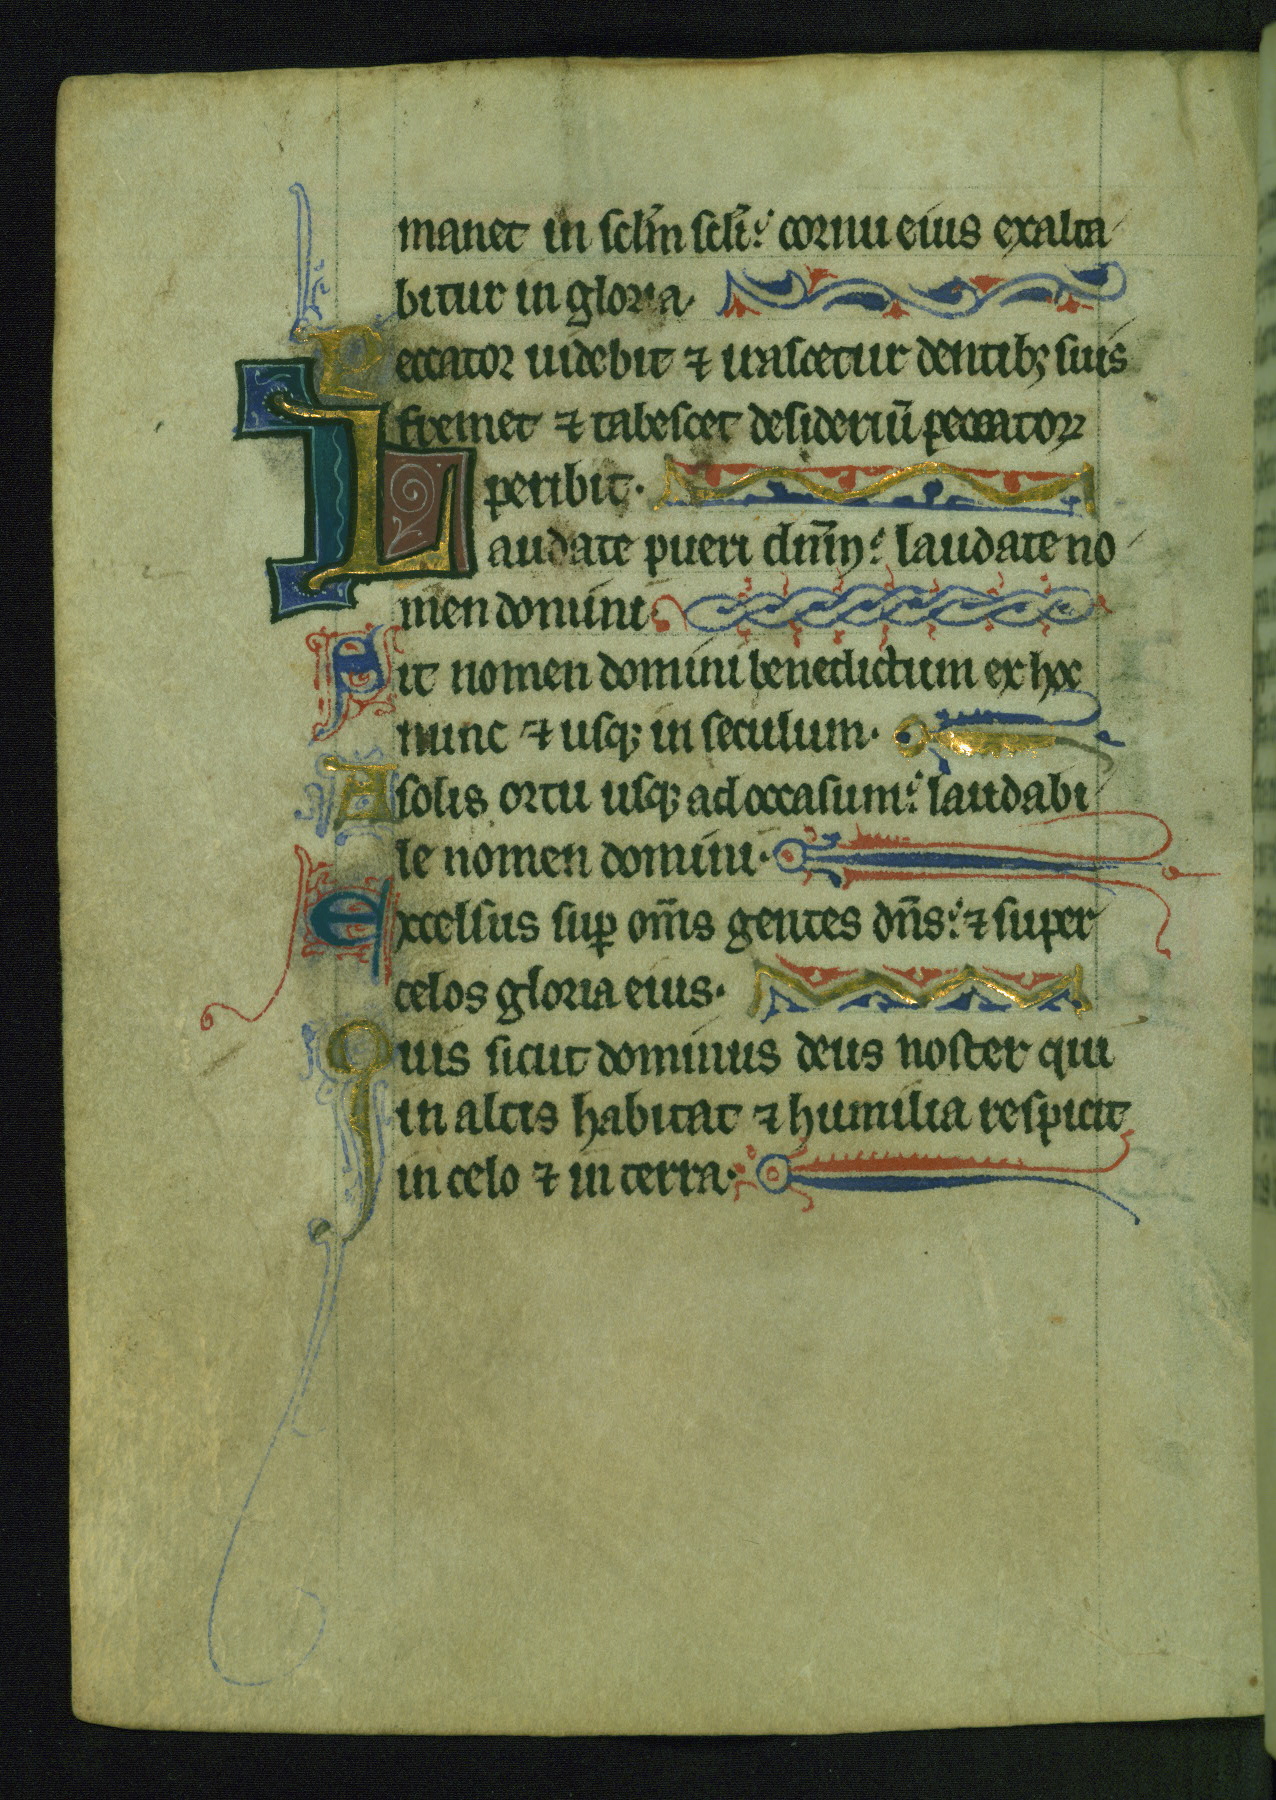 manet in sclm̄ scl̄i: cornu eius exalta
bitur in gloria.
Peccator uidebit ⁊ irascetur dentibꝫ suis
fremet ⁊ tabescet desideriū peccatoꝝ
peribit.
Laudate pueri dn̄m: laudate no
men domini.
Sit nomen domini benedictum ex hoc
nunc ⁊ usqꝫ in seculum.
A solis ortu usqꝫ ad occasum: laudabi
le nomen domini.
Excelsus suꝑ om̄s gentes dn̄s: ⁊ super
celos gloria eius.
Quis sicut dominus deus noster qui
in altis habitat ⁊ humilia respicit
in celo ⁊ in terra.